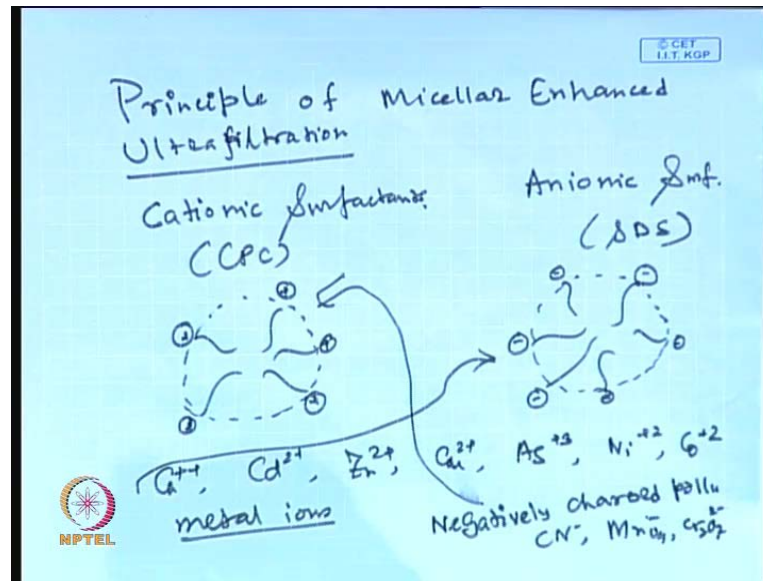 © CET
I.I.T. KGP
Principle of Micellar Enhanced
Ultrafiltration
Cationic Surfactants.
(CPC)
Anionic Surf.
(SDS)
Ca++, Cd2+, Zn2+, Cu2+, As+3, Ni+2, Co+2
metal ions
Negatively charged pollu
CN-, MnO4-, Cr2O7 2-
NPTEL